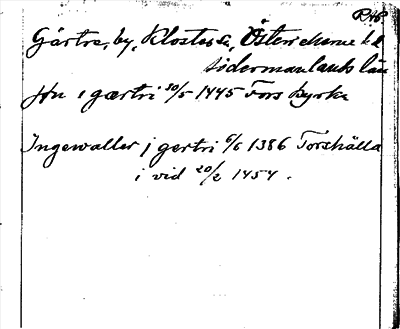 RAP
Gärtra, by, Klosters sn, Österrekarne hd
Södermanlands län
Jon i gærtri 30/5 1445 Fors kyrka
Ingewaller j gertri 6/6 1386 Torshälla
i vid 20/2 1454.